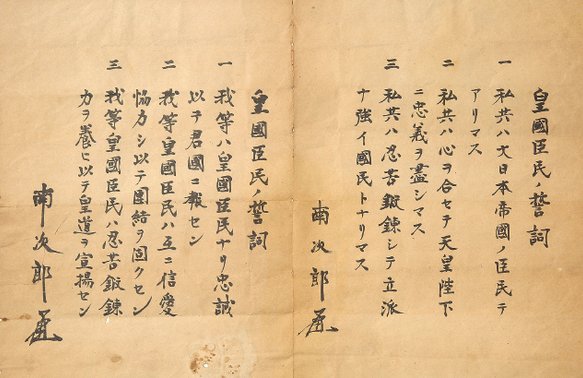 皇國臣民ノ誓詞
一 私共ハ大日本帝國ノ臣民デ
アリマス
二 私共ハ心ヲ合セテ天皇陛下
ニ忠義ヲ盡シマス
三 私共ハ忍苦鍛錬シテ立派
ナ強イ國民トナリマス
南次郎
皇國臣民ノ誓詞
一 我等ハ皇國臣民ナリ忠誠
以テ君國ニ報セン
二 我等皇國臣民ハ互ニ信愛
協力シ以テ團結ヲ固クセン
三 我等皇國臣民ハ忍苦鍛錬
力ヲ養ヒ以テ皇道ヲ宣揚セン
南次郎